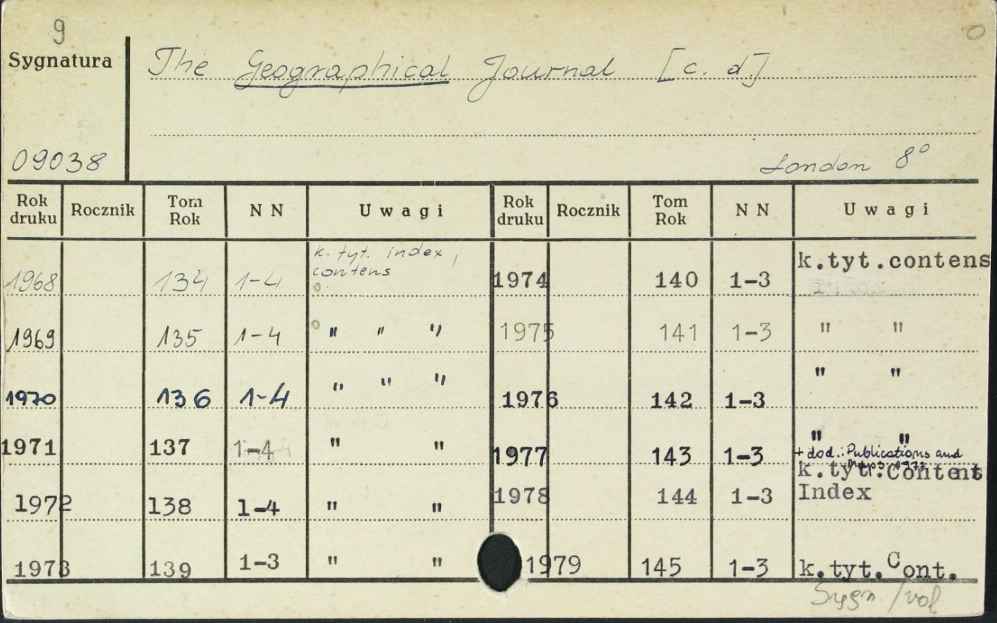 9
Sygnatura
The Geographical Journal [c. d.]
09038
London 8°
Rok druku Rocznik Tom Rok N N Uwagi Rok druku Rocznik Tom Rok N N Uwagi
1968 134 1-4 k. tyt. index, contens 1974 140 1-3 k.tyt.contens
1969 135 1-4 " " " 1975 141 1-3 " "
1970 136 1-4 " " " 1976 142 1-3 " "
1971 137 1-4 " " 1977 143 1-3 " " + dod.: Publications and Maps 1977
1972 138 1-4 " " 1978 144 1-3 k.tyt.Content Index
1973 139 1-3 " " 1979 145 1-3 k.tyt.Cont.
Sygn /vol